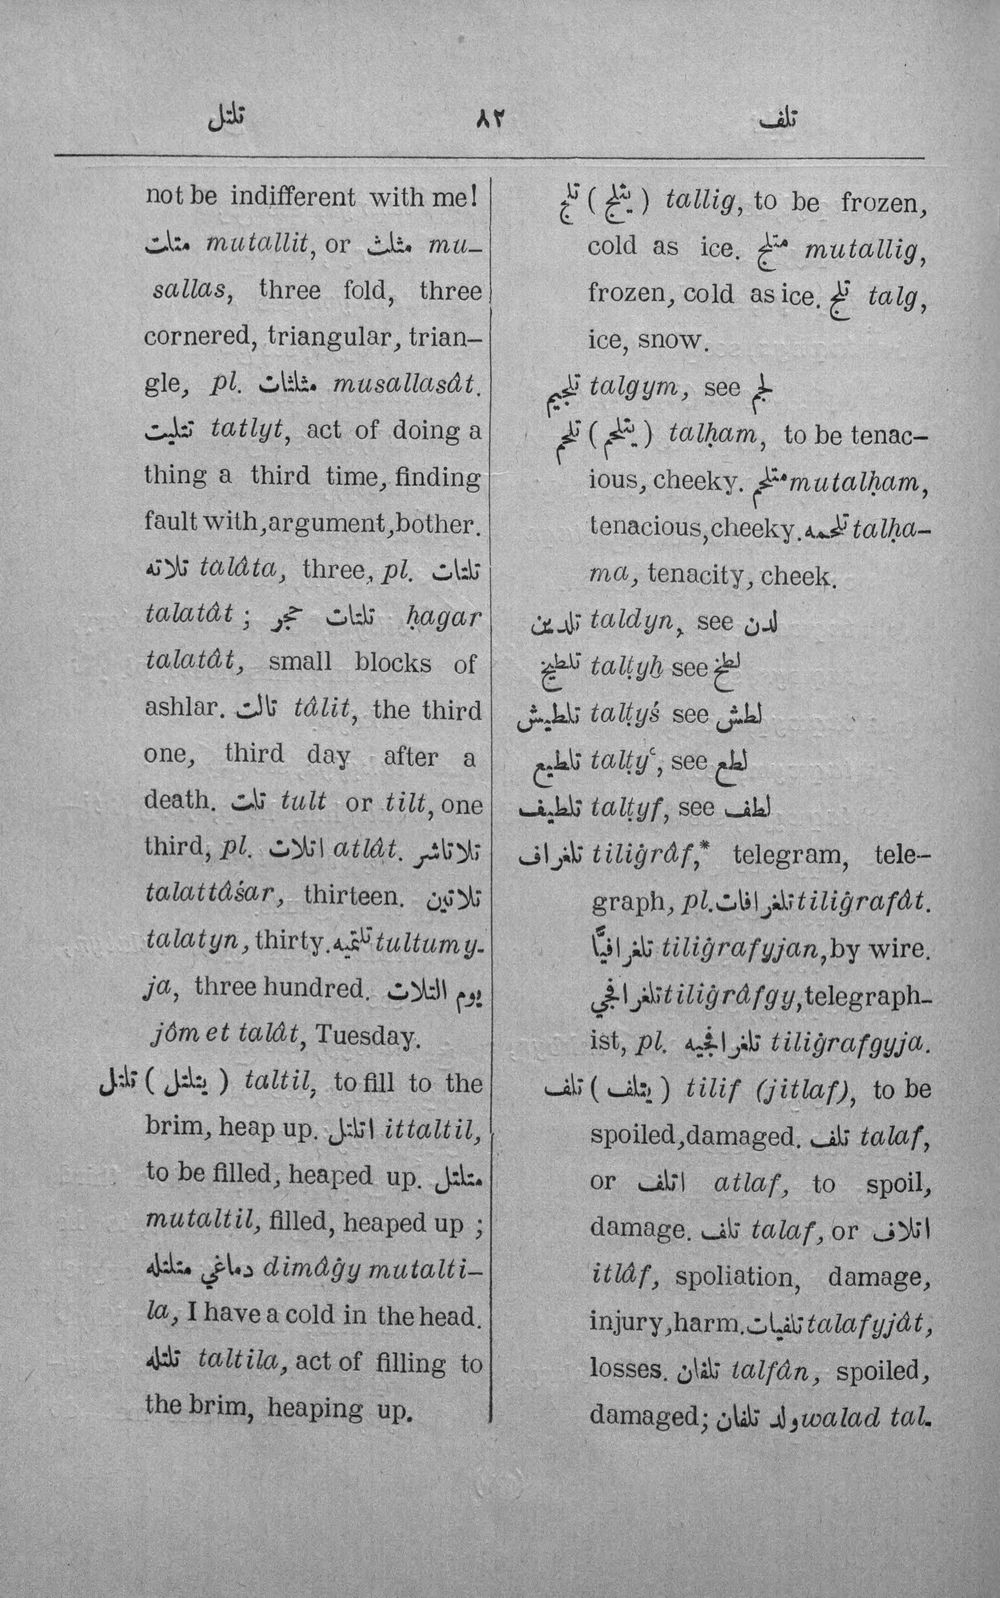 تلتل ٨٢ تلف
not be indifferent with me!
متلت mutallit, or مثلث mu-
sallas, three fold, three
cornered, triangular, trian-
gle, pl. مثلثات musallasât.
تتليت tatlyt, act of doing a
thing a third time, finding
fault with, argument, bother.
تلاته talâta, three, pl. تلتات
talatât ; حجر تلتات ḥagar
talatât, small blocks of
ashlar. تالت tâlit, the third
one, third day after a
death. تلت tult or tilt, one
third, pl. اتلات atlât. تلاتاشر
talattâśar, thirteen. تلاتين
talatyn, thirty. تلتميه tultumy-
ja, three hundred. يوم التلات
jôm et talât, Tuesday.
تلتل ( يتلتل ) taltil, to fill to the
brim, heap up. اتلتل ittaltil,
to be filled, heaped up. متلتل
mutaltil, filled, heaped up ;
دماغي متلتله dimâġy mutalti-
la, I have a cold in the head.
تلتله taltila, act of filling to
the brim, heaping up.
تلج ( يتلج ) tallig, to be frozen,
cold as ice. متلج mutallig,
frozen, cold as ice. تلج talg,
ice, snow.
تلجيم talgym, see لجم
تلحم ( يتلحم ) talḥam, to be tenac-
ious, cheeky. متلحم mutalḥam,
tenacious, cheeky. تلحمه talḥa-
ma, tenacity, cheek.
تلدين taldyn, see لدن
تلطيخ talṭyḫ see لطخ
تلطيش talṭyś see لطش
تلطيع talṭyʿ, see لطع
تلطيف talṭyf, see لطف
تلغراف tiliġrâf,* telegram, tele-
graph, pl. تلغرافات tiliġrafât.
تلغرافيًّا tiliġrafyjan, by wire.
تلغرافجي tiliġrâfgy, telegraph-
ist, pl. تلغرافجيه tiliġrafgyja.
تلف ( يتلف ) tilif (jitlaf), to be
spoiled, damaged. تلف talaf,
or اتلف atlaf, to spoil,
damage. تلف talaf, or اتلاف
itlâf, spoliation, damage,
injury, harm. تلفيات talafyjât,
losses. تلفان talfân, spoiled,
damaged; ولد تلفان walad tal-